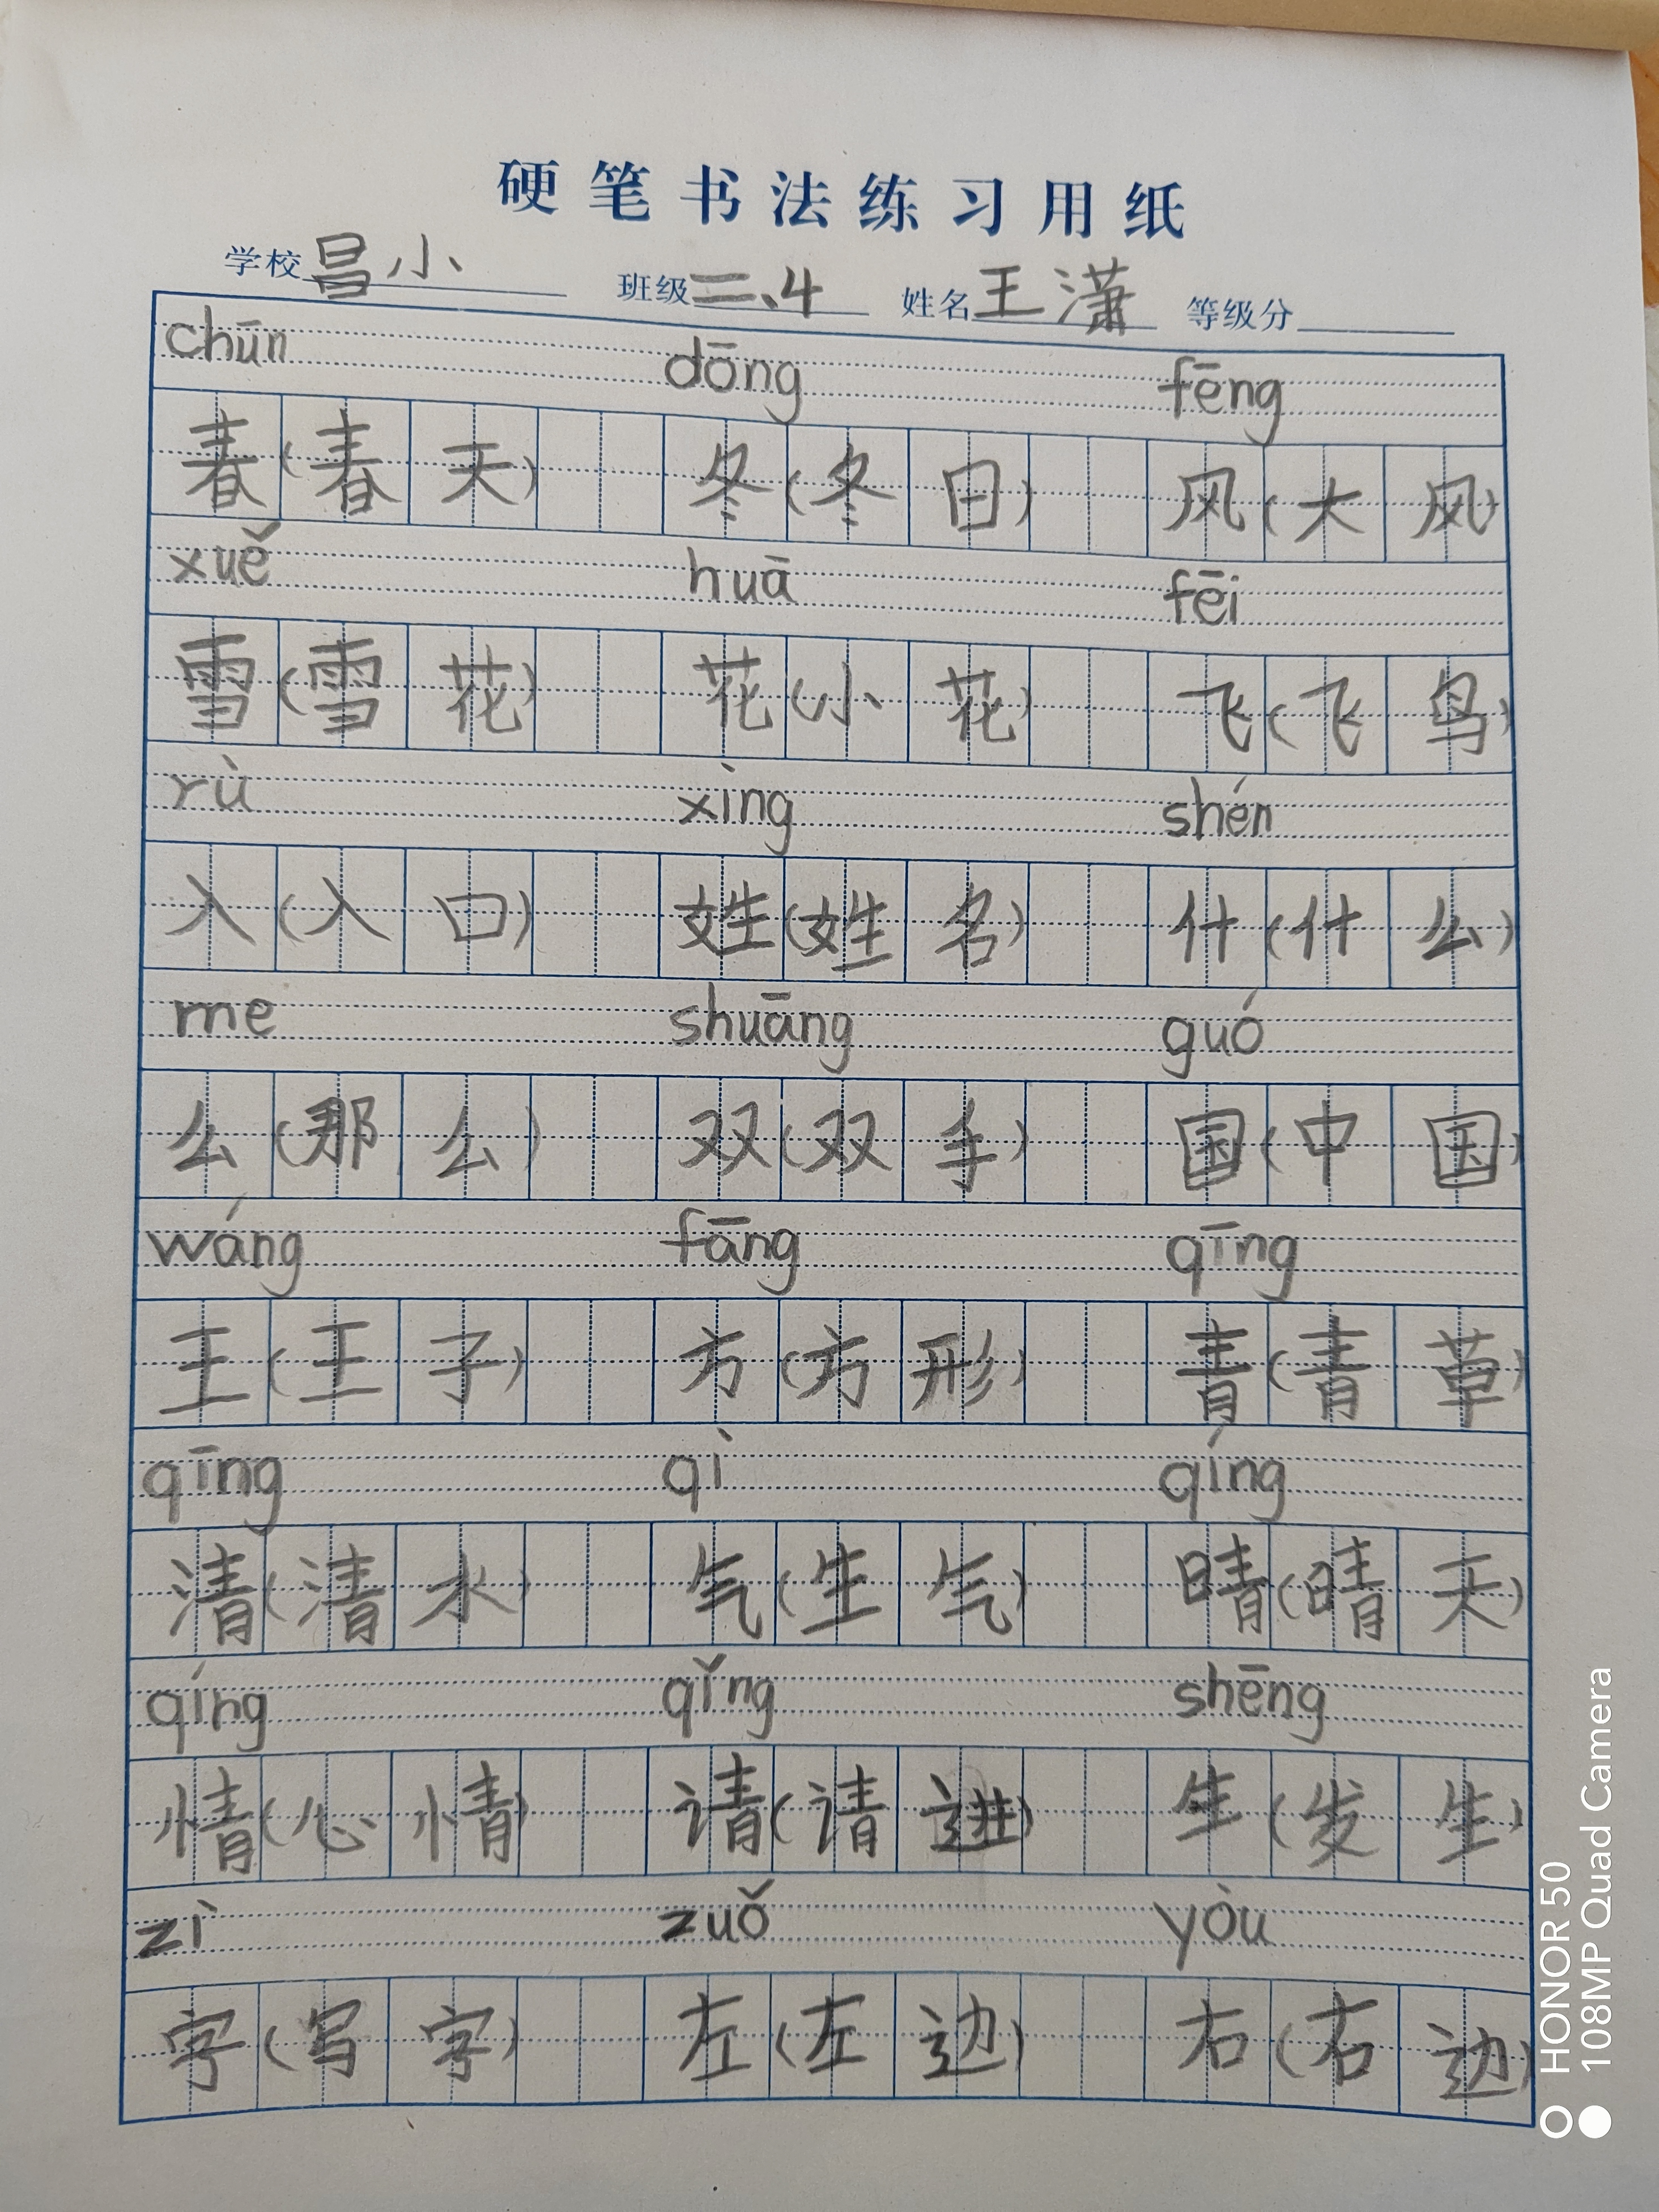 硬笔书法练习用纸
学校 昌小 班级 二、4 姓名 王潇 等级分
chūn dōng fēng
春(春天) 冬(冬日) 风(大风)
xuě huā fēi
雪(雪花) 花(小花) 飞(飞鸟)
rù xìng shén
入(入口) 姓(姓名) 什(什么)
me shuāng guó
么(那么) 双(双手) 国(中国)
wáng fāng qīng
王(王子) 方(方形) 青(青草)
qīng qì qíng
清(清水) 气(生气) 晴(晴天)
qíng qǐng shēng
情(心情) 请(请进) 生(发生)
zì zuǒ yòu
字(写字) 左(左边) 右(右边)
HONOR 50
108MP Quad Camera